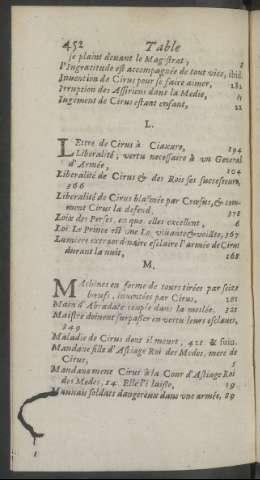 452 Table
se plaint devant le Magistrat, 8
l'Ingratitude est accompagnée de tout vice, ibid.
Invention de Cirus pour se faire aimer, 282
Irruption des Assiriens dans la Medie,
Iugement de Cirus estant enfant, 22
L.
LEttre de Cirus à Ciaxare, 194
Liberalité, vertu necessaire à un General
d'Armée, 104
Liberalité de Cirus & des Rois ses successeurs,
366
Liberalité de Cirus blasmée par Cræsus, & com-
ment Cirus la defend. 378
Loix des Perses, en quoi elles excellent, 6
Loi. Le Prince est une Loi vivante & voilée, 367
Lumiere extraordinaire esclaire l'armée de Cirus
durant la nuit, 168
M.
MAchines en forme de tours tirées par seize
bœufs, inventées par Cirus, 281
Main d'Abradate coupée dans la meslée. 321
Maistre doivent surpasser en vertu leurs esclaves,
349
Maladie de Cirus dont il meurt, 421. & suiv.
Mandane fille d'Astiage Roi des Medes, mere de
Cirus, 5
Mandane mene Cirus à la Cour d'Astiage Roi
des Medes, 14. Elle l'i laisse, 19
Mauvais soldats dangereux dans une armée, 89